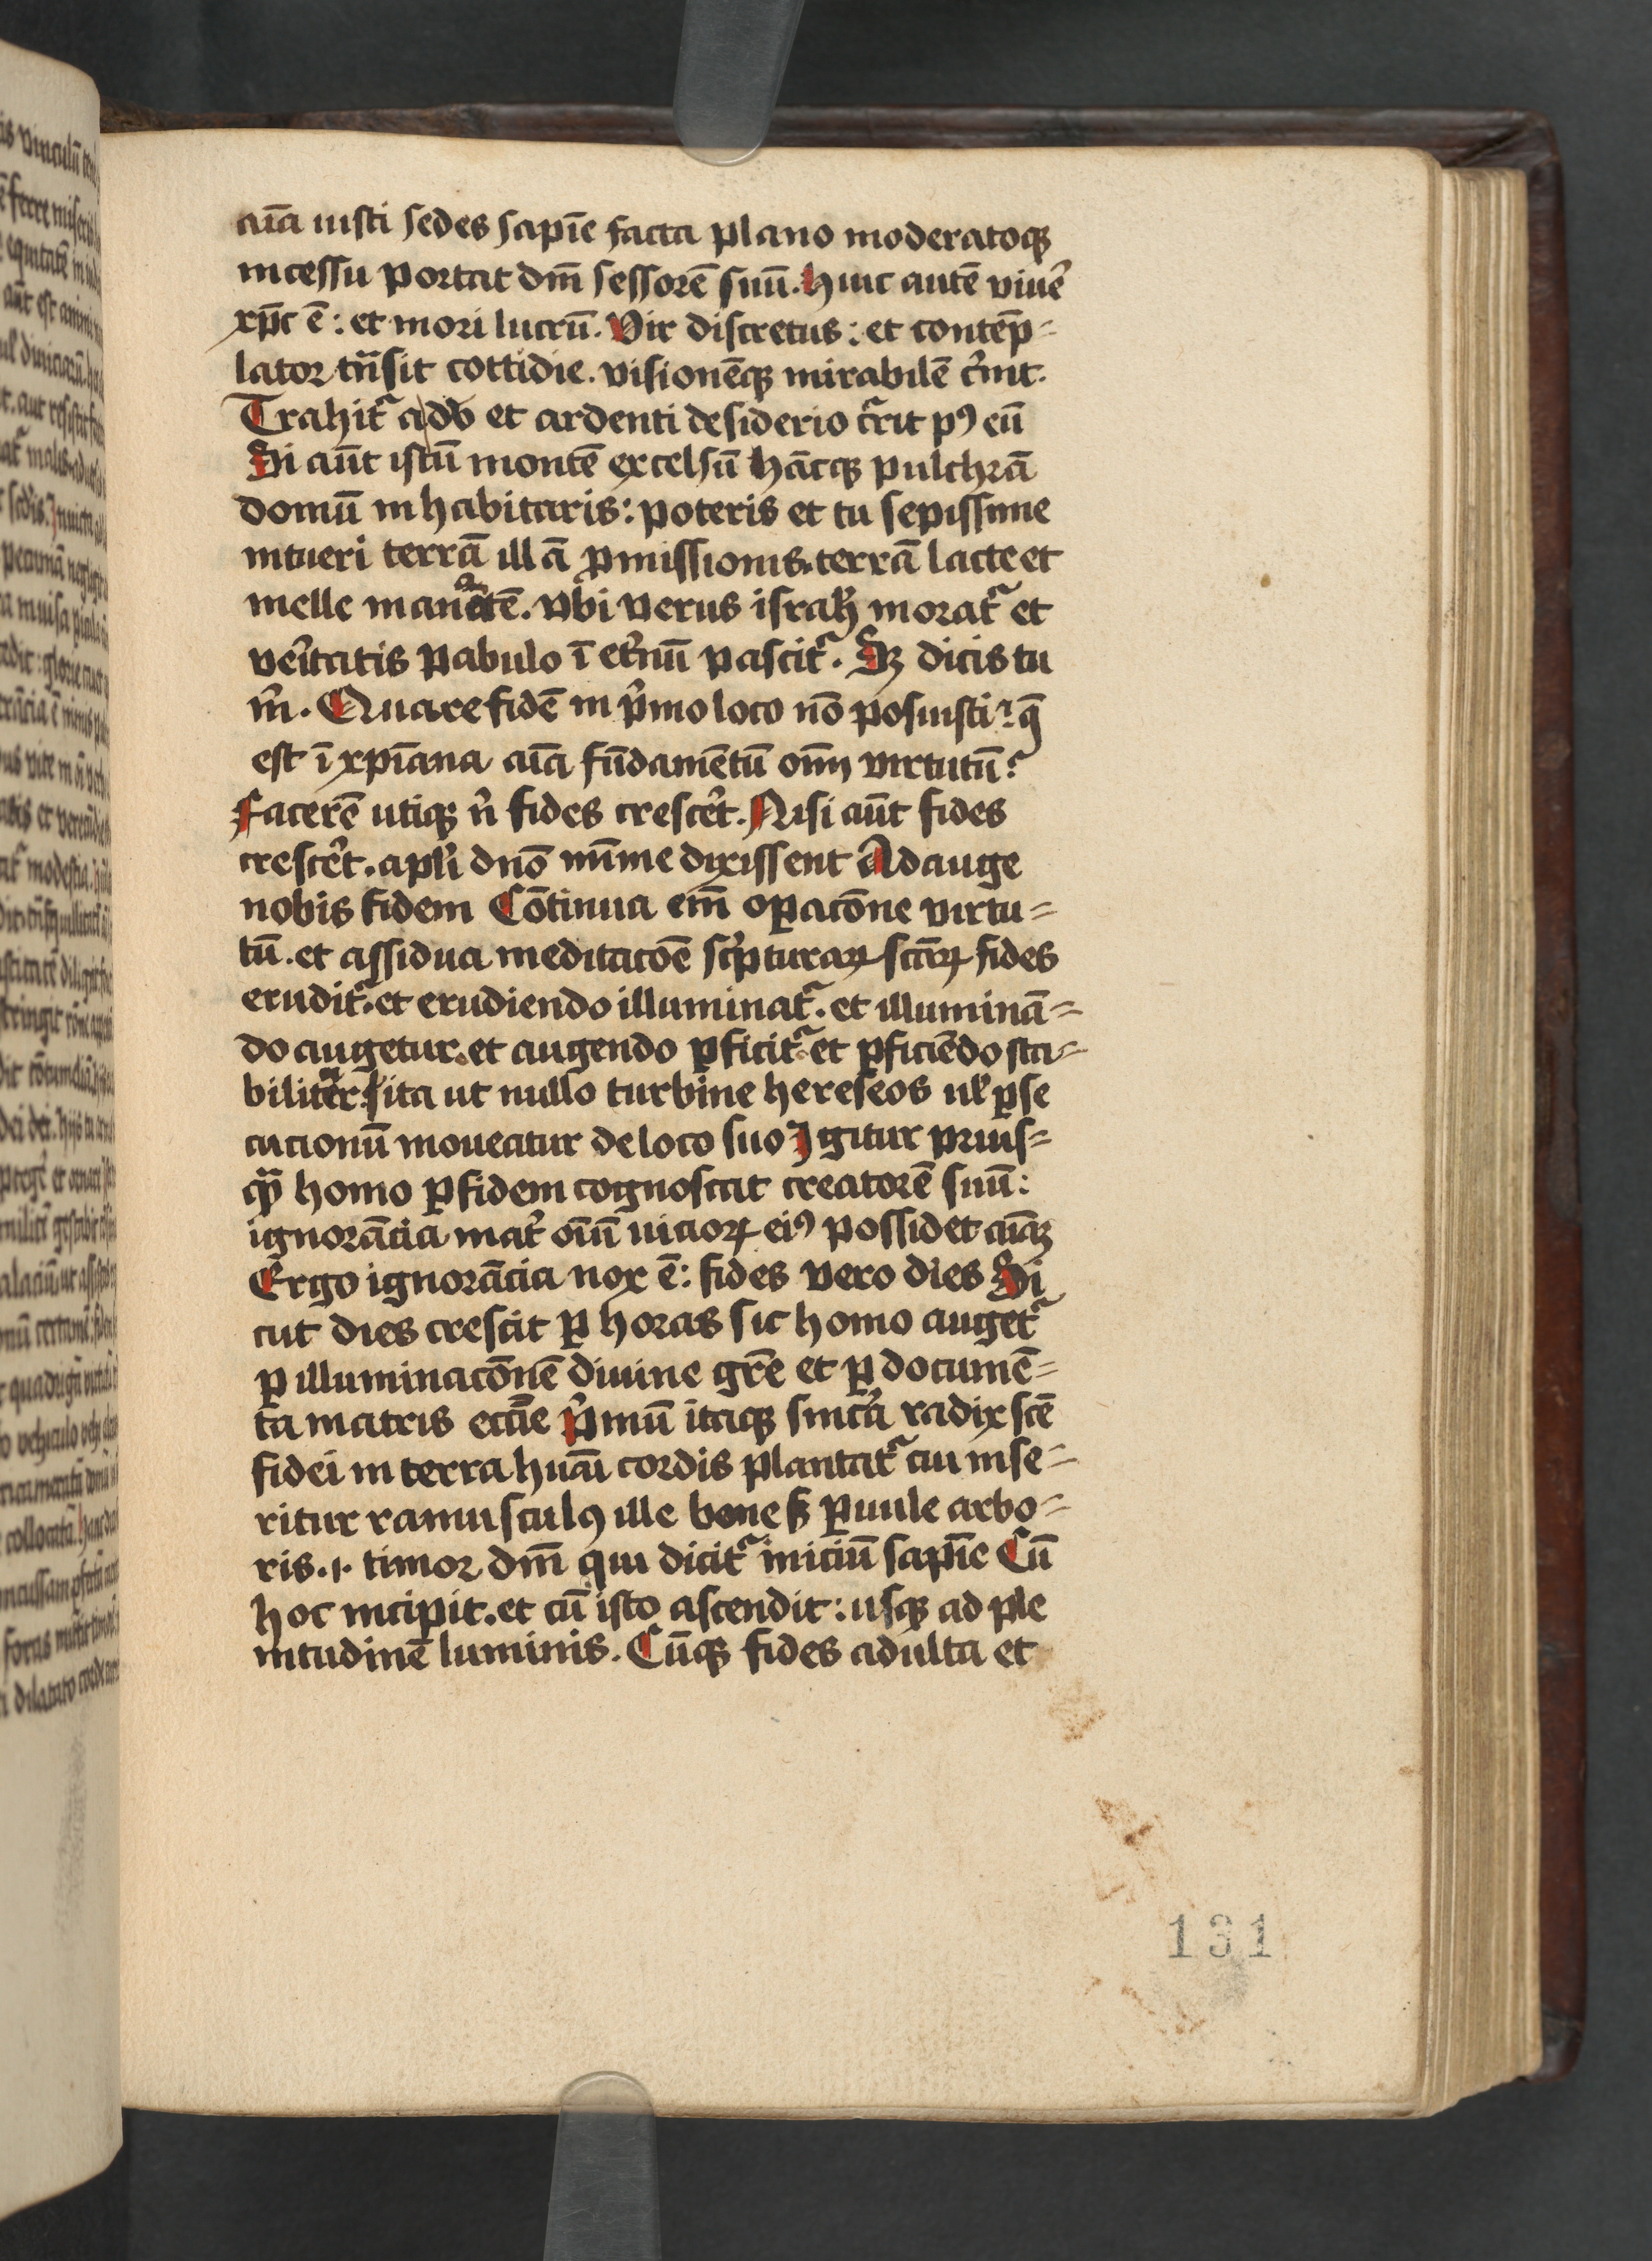 aīa iusti sedes sapīe facta plano moderatoqꝫ
incessu portat dm̄ sessorē suū. Huic autē viuẽ
xp̄c ē: et mori lucrū. Vir discretus: et contēp=
lator tn̄sit cottidie. visionēqꝫ mirabilē c̓nit.
Trahit᷑ adō et ardenti desiderio c᷑rit pꝰ eū
Si aūt istū montē excelsū hācqꝫ pulchrā
domū inhabitaris: poteris et tu sepissime
intueri terrā illā ꝓmissionis. terrā lacte et
melle manātē. vbi verus israhl̓ morat᷑ et
ve̓itatis pabulo ī et̓nū pascit᷑. Sꝫ dicis tu
m̓. Quare fidē in p̓mo loco nō posuisti? q̄
est ī xp̄iana aīa fūdamētū oīm virtutū?
Facerē utiqꝫ n̓ fides cresce̓t. Nisi aūt fides
cresce̓t. apl̓i dn̄o mīme dixissent Adauge
nobis fidem Cōtinua em̄ oꝑacōne virtu=
tū. et assidua meditacōe sc̓pturaꝝ scārꝝ fides
erudit᷑. et erudiendo illuminat᷑. et illuminā=
do augetur. et augendo ꝑficit᷑ et ꝑficiēdo sta=
bilit᷑ ita ut nullo turbine hereseos ul̓ ꝑse
cucionū moueatur de loco suo Igitur prius=
qꝫ homo ꝑ fidem cognoscat creatorē suū:
ignorācia mat̓ oīm uicioꝝ eiꝰ possidet aīaꝫ
Ergo ignorācia nox ē: fides vero dies Si
cut dies crescit ꝑ horas sic homo auget᷑
ꝑ illuminacōnē diuine gr̄e et ꝑ documē=
ta matris eccīe P̓mū itaqꝫ sinc̓a radix scē
fidei in terra huāi cordis plantat᷑ cui inse=
ritur ramusculꝰ ille bone sꝫ ꝑuule arbo=
ris. .i. timor dm̄ qui dicit᷑ iniciū sapīe Cū
hoc incipit. et cū isto ascendit: usqꝫ ad ple
nitudinē luminis. Cūqꝫ fides adulta et
131